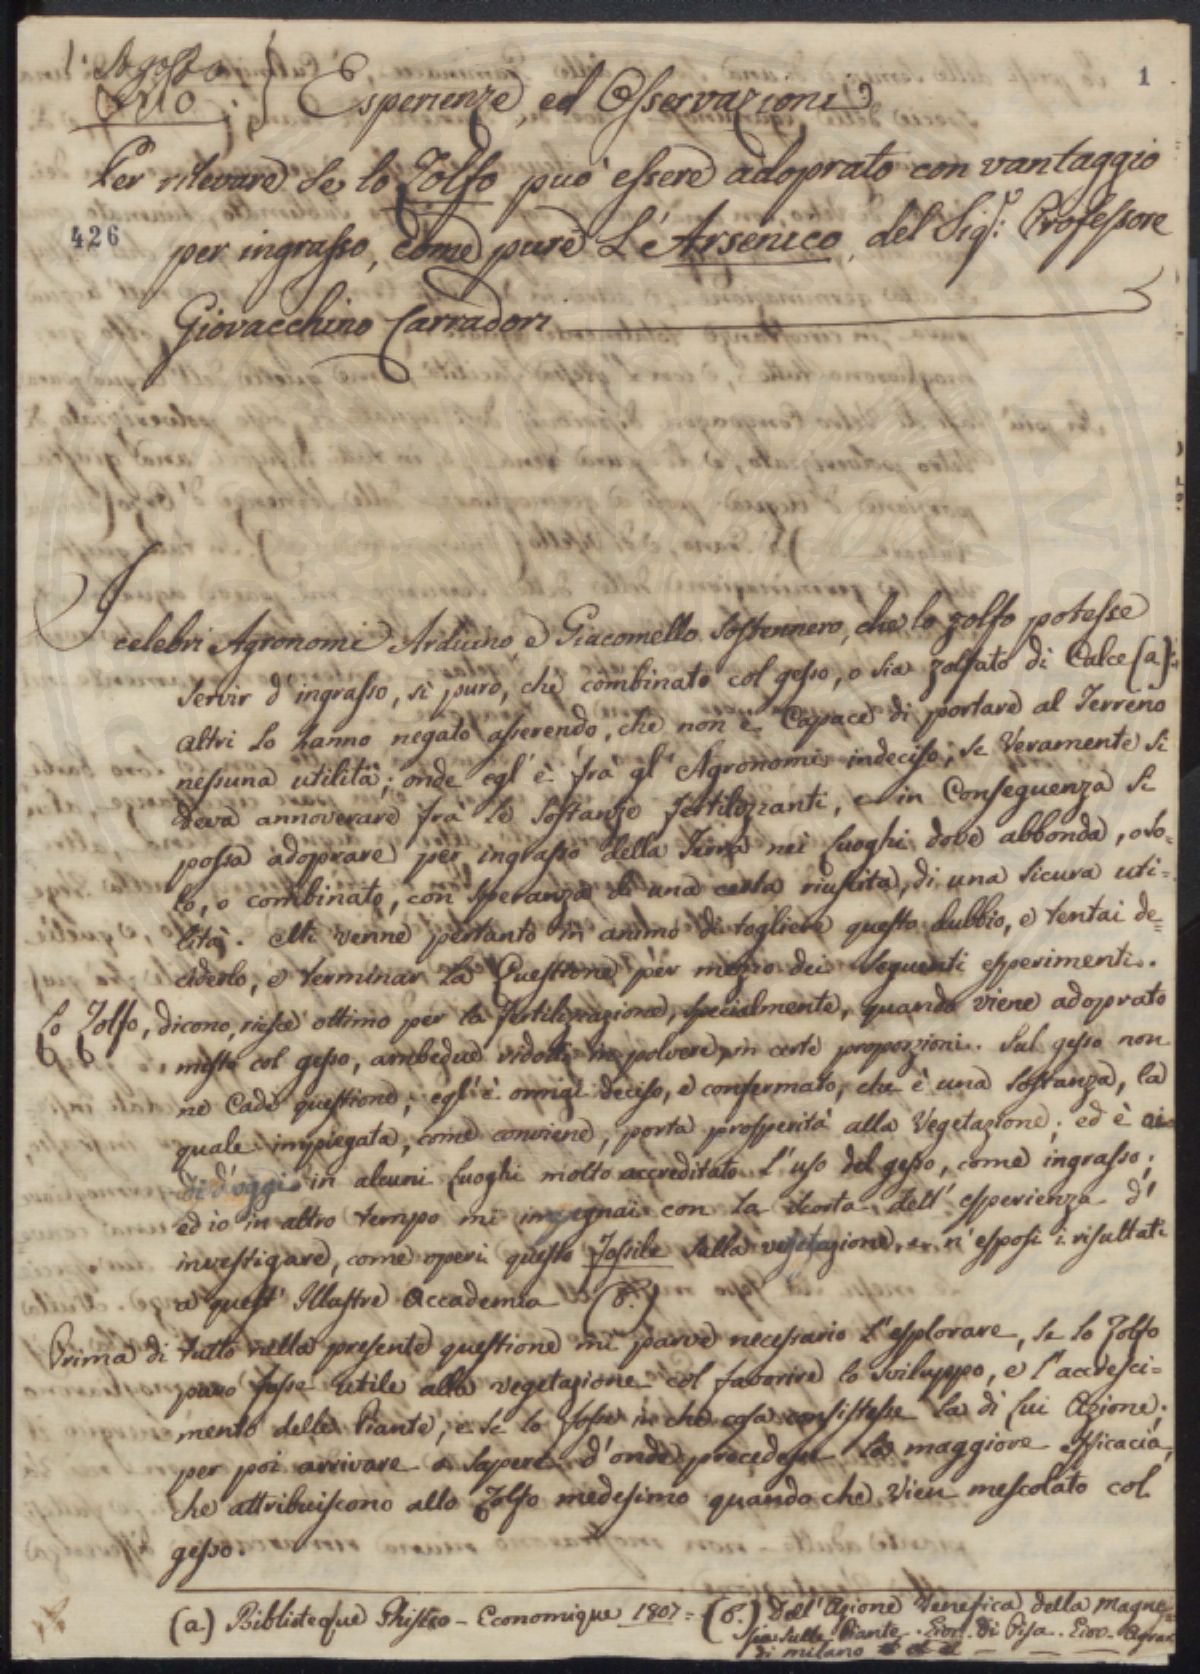 1. Agosto
1810
Esperienze, ed Osservazioni
1
Per rilevare se lo Zolfo può essere adoprato con vantaggio
426
per ingrasso, come pure L'Arsenico, del Sigr: Professore
Giovacchino Carradori
I
celebri Agronomi Arduino e Giacomello sostennero, che lo zolfo potesse
servir d'ingrasso, sì puro, che combinato col gesso, o sia zolfato di Calce (a.):
altri lo hanno negato asserendo, che non è Capace di portare al Terreno
nessuna utilità; onde egl'è frà gl'Agronomi indeciso, se Veramente si
deva annoverare frà le sostanze fertilizzanti, e in Conseguenza si
possa adoprare per ingrasso della Terra nei luoghi dove abbonda, o so-
lo, o combinato, con speranza di una certa riuscita, di una sicura uti=
lità. Mi venne pertanto in animo di togliere questo dubbio, e tentai de=
ciderlo, e terminar La Questione per mezzo dei seguenti esperimenti.
Lo Zolfo, dicono, riesce ottimo per la fertilizzazione, specialmente, quando viene adoprato
misto col gesso, ambedue ridotti in polvere, in certe proporzioni. Sul gesso non
ne Cade questione; egl'è omai deciso, e confermato, che è una sostanza, la
quale impiegata, come conviene, porta prosperità alla Vegetazione; ed è ai
dì d'oggi in alcuni luoghi molto accreditato L'uso del gesso, come ingrasso;
ed io in altro tempo mi ingegnai con La scorta dell'esperienza d'
investigare, come operi questo fossile sulla vegetazione, e n'esposi i risultati
a quest'Illustre Accademia (b.)
Prima di tutto nella presente questione mi parve necessario L'esplorare, se lo Zolfo
puro fosse utile alla vegetazione col favorire lo sviluppo, e l'accresci-
mento delle Piante, e se lo fosse in che cosa consistesse la di lui Azione;
per poi arrivare a sapere d'onde procedesse la maggiore efficacia,
che attribuiscono allo Zolfo medesimo quando che vien mescolato col
gesso.
(a.) Biblioteque Phisico-Economique 1807= (b.) Dell'Azione Venefica della Magne=
sia sulle Piante. Gior. di Pisa. Gior. Agrar.
di Milano